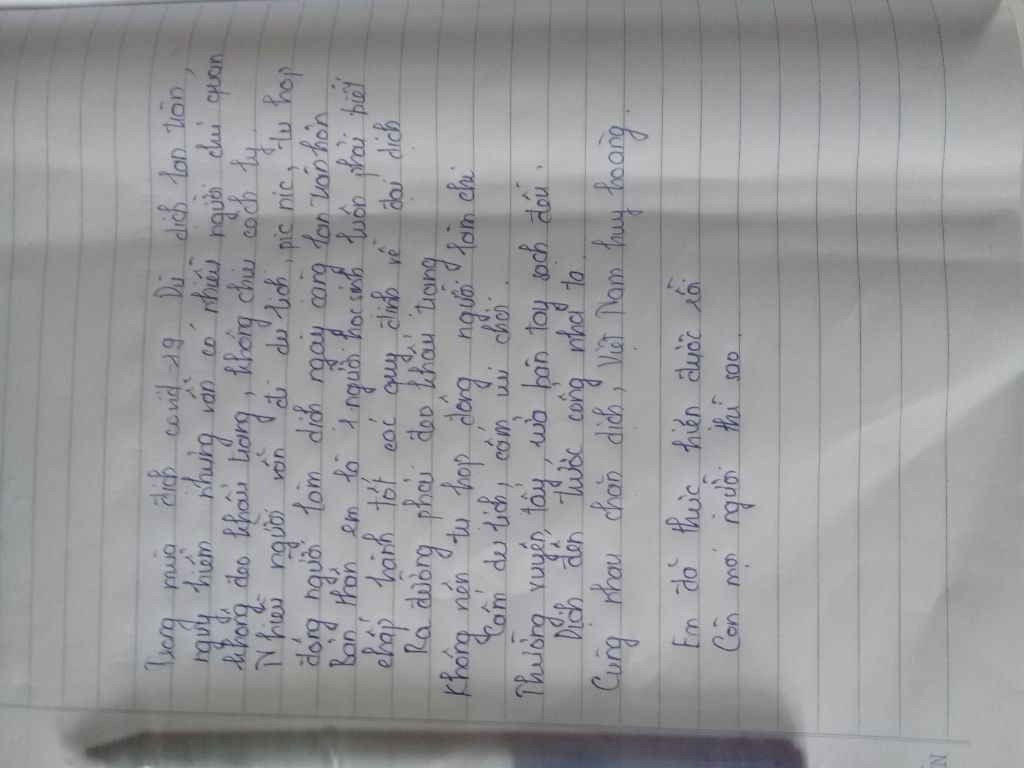 Trong mùa dịch covid-19. Dù dịch lan tràn,
nguy hiểm nhưng vẫn có nhiều người chủ quan
không đeo khẩu trang, không chịu cách ly.
Nhiều người vẫn đi du lịch, pic nic, tụ họp
đông người làm dịch ngày càng lan tràn hơn
Bản thân em là 1 người học sinh luôn phải biết
chấp hành tốt các quy định về đại dịch
Ra đường phải đeo khẩu trang
Không nên tụ họp đông người làm chi
Cấm du lịch, cấm vui chơi.
Thường xuyên tẩy, rửa bàn tay sạch đôi.
Dịch đến trước cổng nhà ta.
Cùng nhau chặn dịch, Việt Nam huy hoàng.
Em đã thực hiện được rồi
Còn mọi người thì sao.